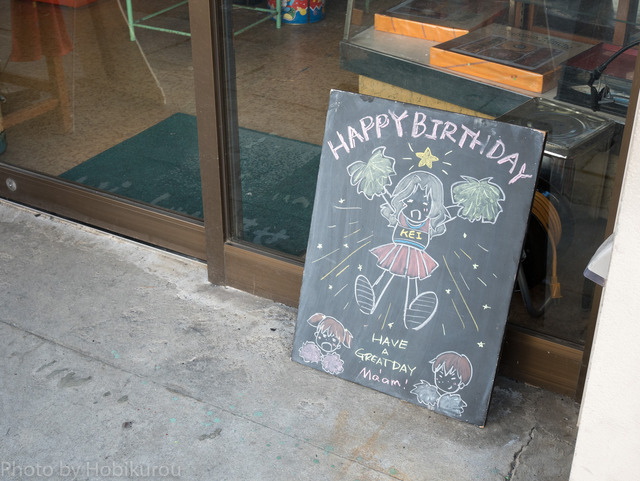 HAPPY BIRTHDAY
KEI
HAVE
A
GREAT DAY
Maam!
Photo by Hobikurou